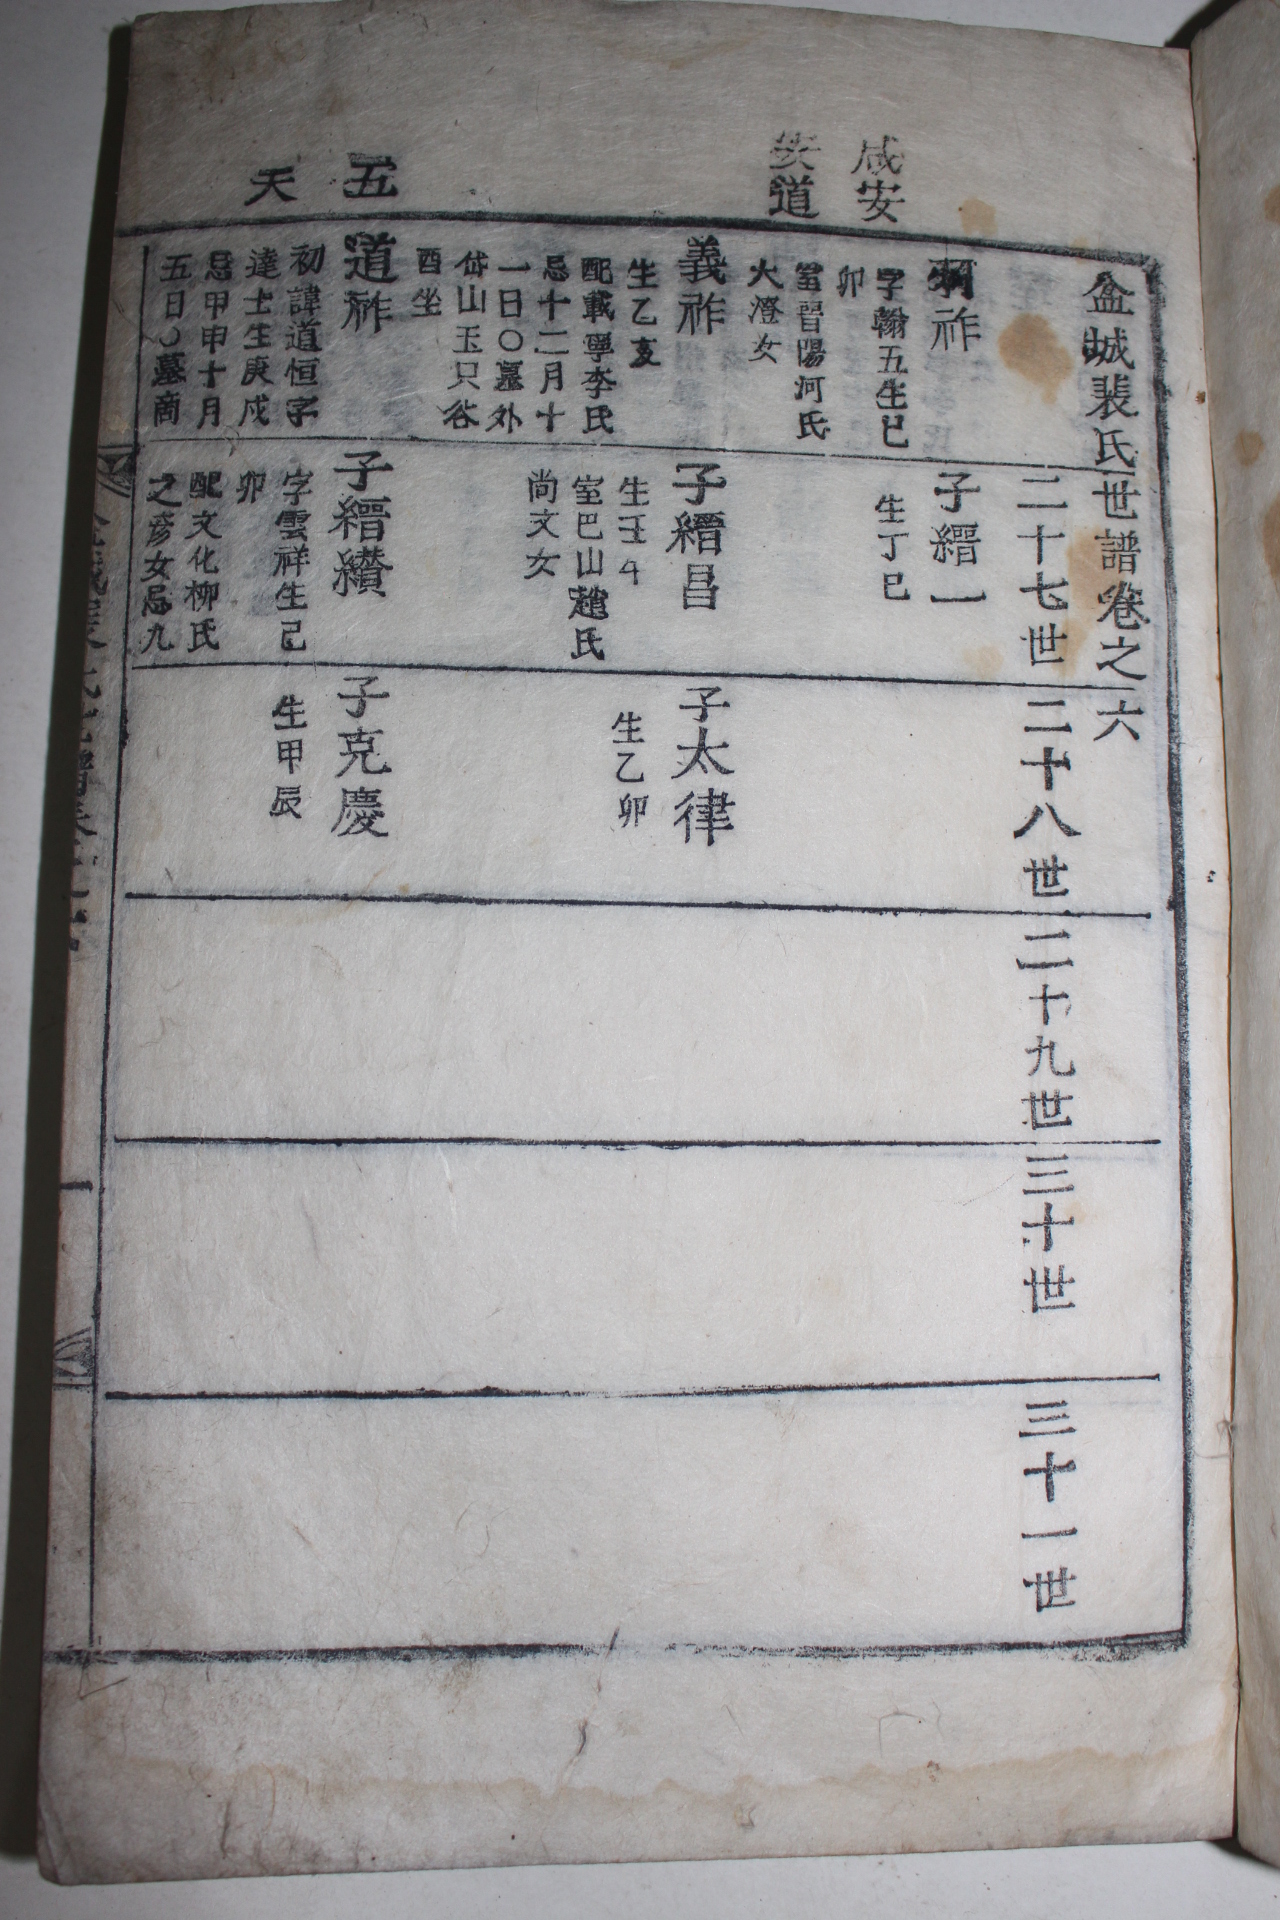 咸安
安道
五
天
盆城裴氏世譜卷之六
二十七世
二十八世
二十九世
三十世
三十一世
祚
字翰五生己
卯
室晋陽河氏
大澄女
子縉一
生丁巳
義祚
生乙亥
配載寧李氏
忌十二月十
一日〇墓外
岱山玉只谷
酉坐
子縉昌
生壬午
室巴山趙氏
尚文女
子太律
生乙卯
道祚
初諱道恒字
達士生庚戌
忌甲申十月
五日〇墓商
子縉纉
字雲祥生己
卯
配文化柳氏
之彦女忌九
子克慶
生甲辰